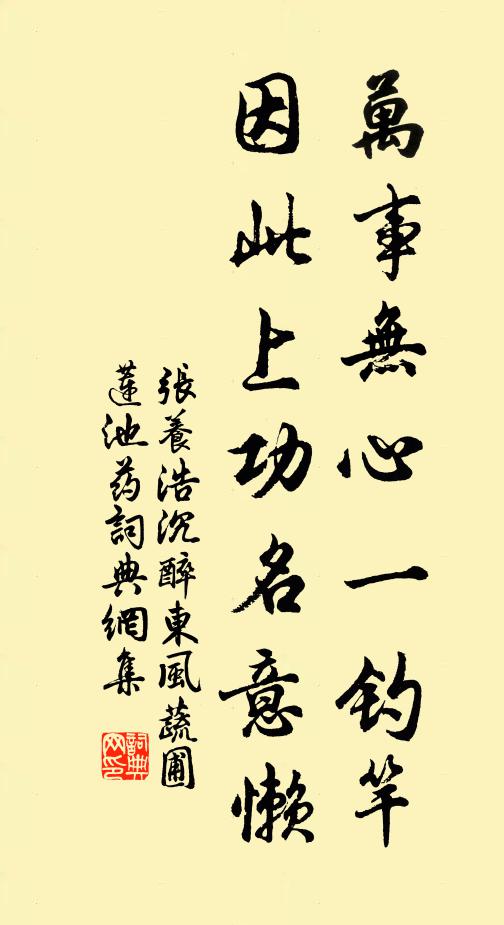 萬事無心一釣竿
因此上功名意懶
張養浩沉醉東風蔬圃
蓮池药詞典網集
詞典网印